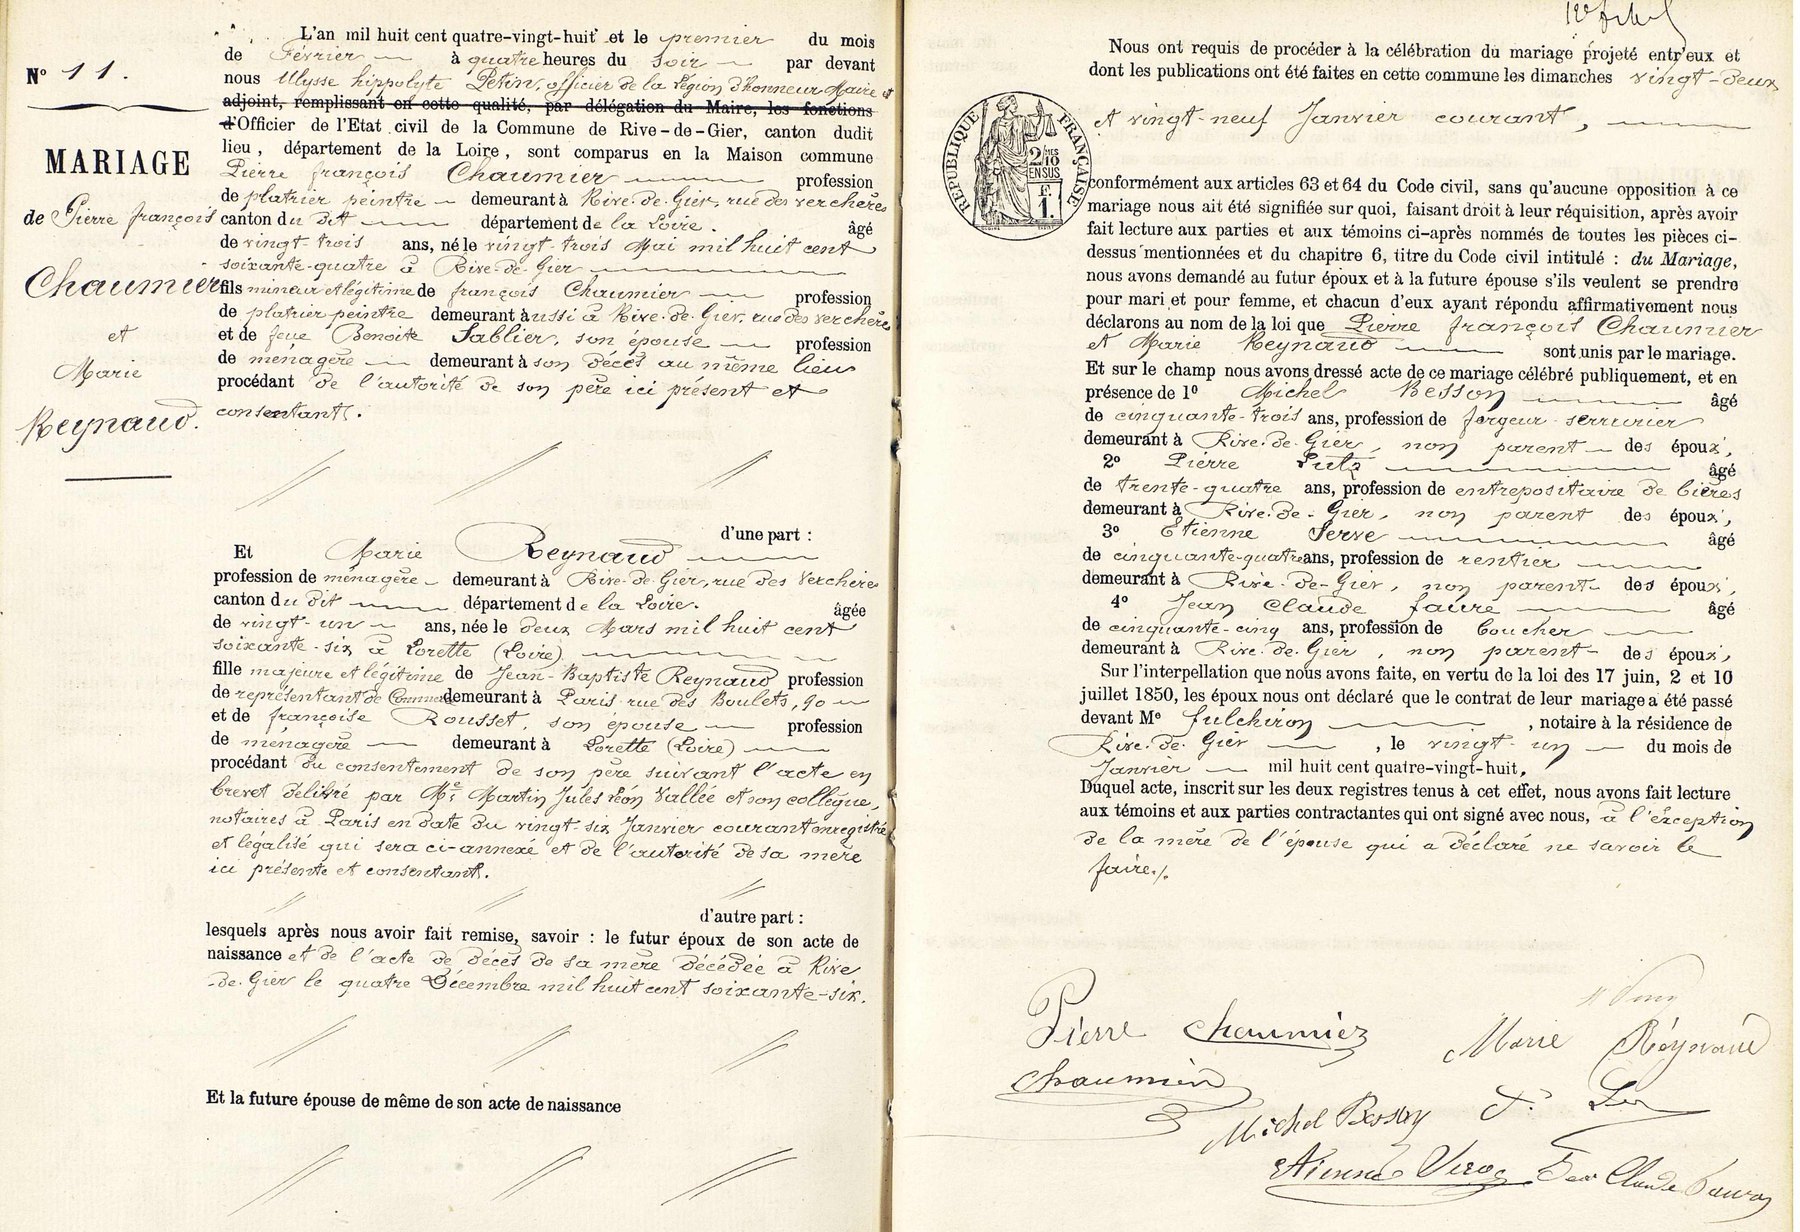 N° 11.
MARIAGE
de Pierre françois
Chaumier
et
Marie
Reynaud.
L'an mil huit cent quatre-vingt-huit et le premier du mois
de Février à quatre heures du soir par devant
nous Ulysse hippolyte Petin, officier de la Légion d'honneur Maire et
adjoint, remplissant en cette qualité, par délégation du Maire, les fonctions
d'Officier de l'Etat civil de la Commune de Rive-de-Gier, canton dudit
lieu, département de la Loire, sont comparus en la Maison commune
Pierre françois Chaumier profession
de platrier peintre demeurant à Rive-de-Gier, rue des verchères
canton du dit département de la Loire. âgé
de vingt-trois ans, né le vingt-trois Mai mil huit cent
soixante-quatre à Rive-de-Gier
fils mineur et légitime de françois Chaumier profession
de platrier peintre demeurant aussi à Rive-de-Gier, rue des verchères
et de feue Benoite Sablier, son épouse profession
de ménagère demeurant à son décès au même lieu
procédant de l'autorité de son père ici présent et
consentant.
d'une part :
Et Marie Reynaud
profession de ménagère demeurant à Rive-de-Gier, rue des Verchères
canton du dit département de la Loire. âgée
de vingt-un ans, née le deux Mars mil huit cent
soixante-six à Lorette (Loire)
fille majeure et légitime de Jean-Baptiste Reynaud profession
de représentant de Commerce demeurant à Paris rue des Boulets, 90
et de françoise Rousset, son épouse profession
de ménagère demeurant à Lorette (Loire)
procédant du consentement de son père suivant l'acte en
brevet délivré par Me. Martin Jules Léon Vallée et son collègue,
notaires à Paris en date du vingt-six Janvier courant enregistré
et légalisé qui sera ci-annexé et de l'autorité de sa mère
ici présente et consentant.
d'autre part :
lesquels après nous avoir fait remise, savoir : le futur époux de son acte de
naissance et de l'acte de décès de sa mère décédée à Rive
-de-Gier le quatre Décembre mil huit cent soixante-six.
Et la future épouse de même de son acte de naissance
Nous ont requis de procéder à la célébration du mariage projeté entr'eux et
dont les publications ont été faites en cette commune les dimanches vingt-deux
et vingt-neuf Janvier courant,
RÉPUBLIQUE FRANÇAISE
2/10MES
EN SUS
F.
1.
conformément aux articles 63 et 64 du Code civil, sans qu'aucune opposition à ce
mariage nous ait été signifiée sur quoi, faisant droit à leur réquisition, après avoir
fait lecture aux parties et aux témoins ci-après nommés de toutes les pièces ci-
dessus mentionnées et du chapitre 6, titre du Code civil intitulé : du Mariage,
nous avons demandé au futur époux et à la future épouse s'ils veulent se prendre
pour mari et pour femme, et chacun d'eux ayant répondu affirmativement nous
déclarons au nom de la loi que Pierre françois Chaumier
et Marie Reynaud sont unis par le mariage.
Et sur le champ nous avons dressé acte de ce mariage célébré publiquement, et en
présence de 1° Michel Besson âgé
de cinquante-trois ans, profession de forgeur serrurier
demeurant à Rive-de-Gier, non parent des époux,
2° Pierre Lutz âgé
de trente-quatre ans, profession de entrepositaire de bières
demeurant à Rive-de-Gier, non parent des époux,
3° Etienne Serve âgé
de cinquante-quatre ans, profession de rentier
demeurant à Rive-de-Gier, non parent des époux,
4° Jean Claude faure âgé
de cinquante-cinq ans, profession de boucher
demeurant à Rive-de-Gier, non parent des époux,
Sur l'interpellation que nous avons faite, en vertu de la loi des 17 juin, 2 et 10
juillet 1850, les époux nous ont déclaré que le contrat de leur mariage a été passé
devant Me fulchiron, notaire à la résidence de
Rive-de-Gier, le vingt-un du mois de
Janvier mil huit cent quatre-vingt-huit,
Duquel acte, inscrit sur les deux registres tenus à cet effet, nous avons fait lecture
aux témoins et aux parties contractantes qui ont signé avec nous, à l'éxception
de la mère de l'épouse qui a déclaré ne savoir le
faire./.
Pierre Chaumier
Marie Réynaud
Chaumier
Michel Besson
Etienne
Jean Claude Faure